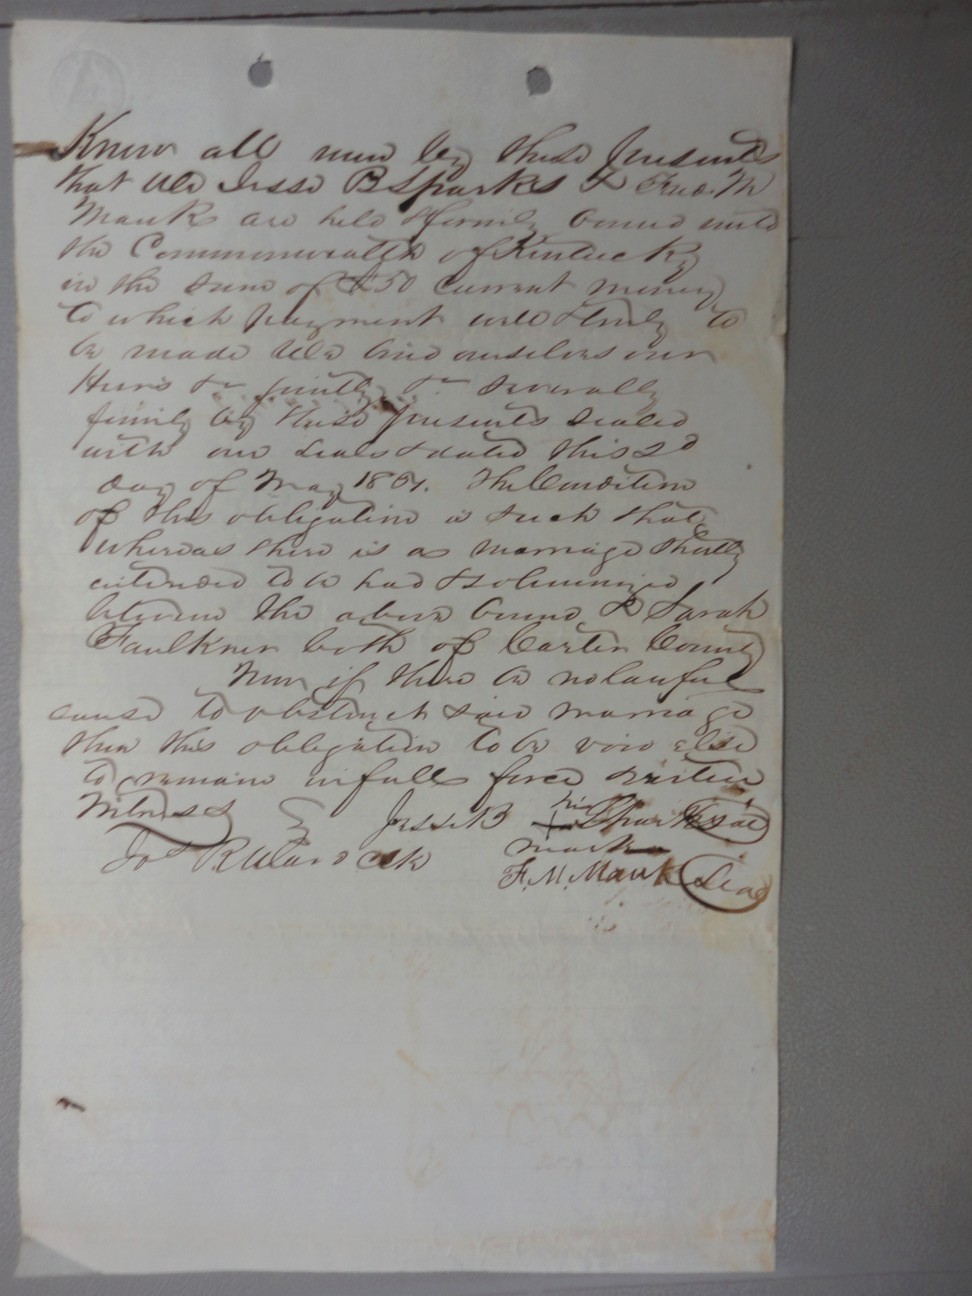 Know all men by these presents
that We Jesse B Sparks & Fred. M
Mauk are held & firmly bound unto
the Commonwealth of Kentucky
in the sum of £50 current money
to which payment well & truly to
be made We bind ourselves our
Heirs &c jointly & severally
firmly by these presents sealed
with our seals & dated this 2d
day of May 1861. The Condition
of this obligation is such that
whereas there is a marriage shortly
intended to be had & solemnized
between the above bound & Sarah
Faulkner both of Carter County
Now if there be no lawful
cause to obstruct said marriage
then this obligation to be void else
to remain in full force &
Witness Jesse B his Sparks Seal
mark
Jos R Wardock
F. M. Mauk Seal